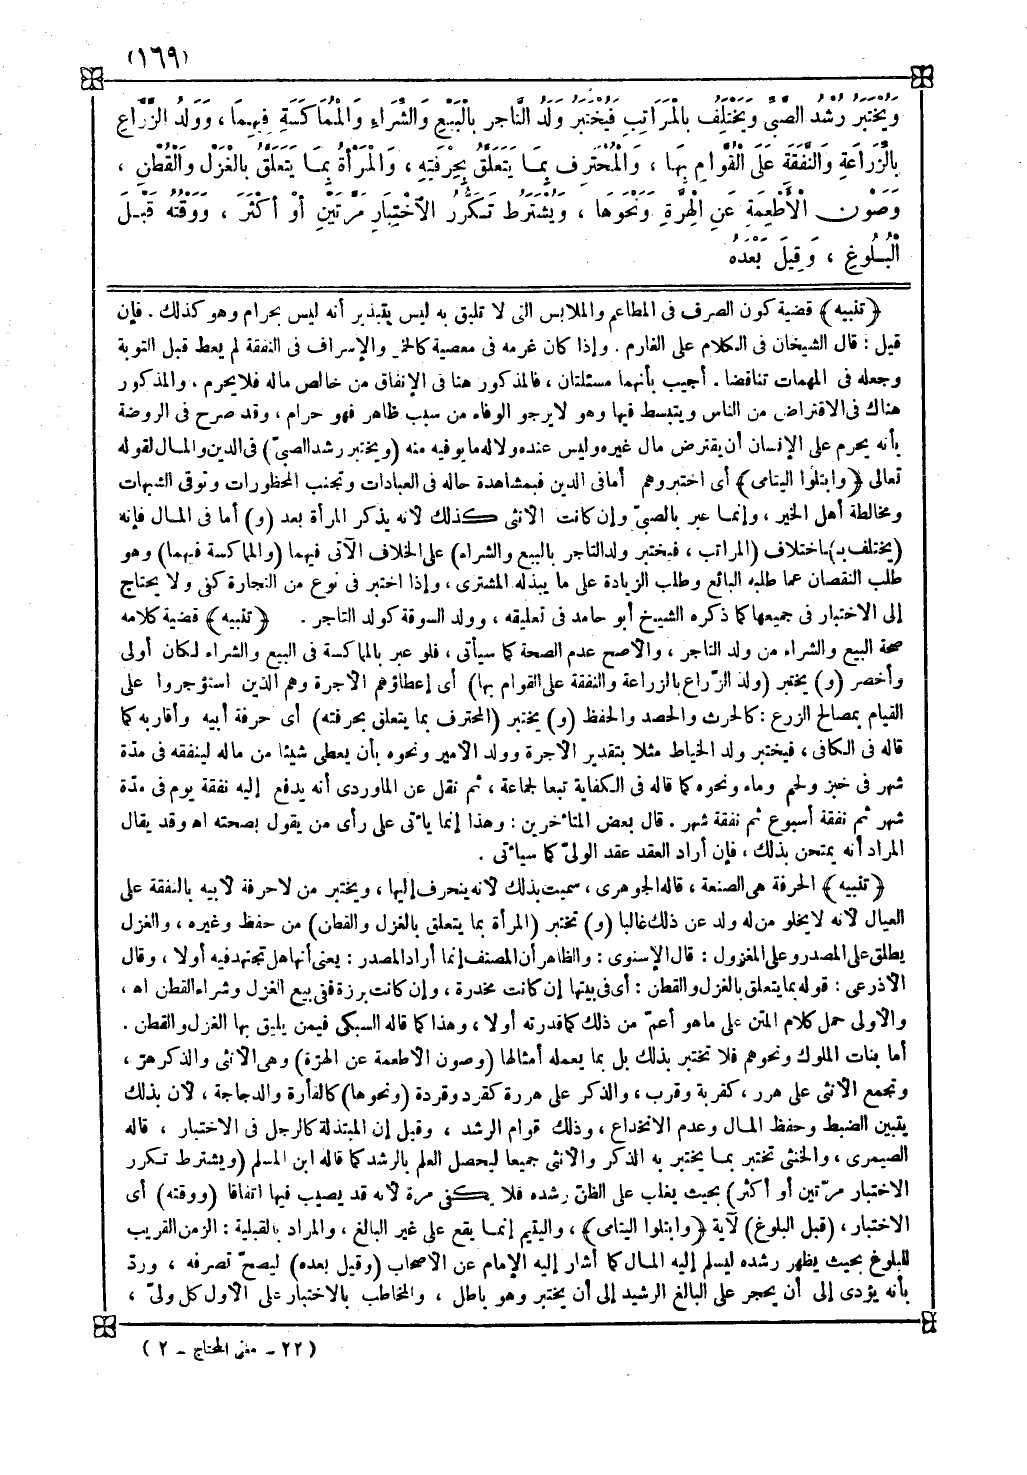 (١٦٩)
وَيُخْتَبَرُ رُشْدُ الصَّبِيِّ وَيَخْتَلِفُ بِالْمَرَاتِبِ فَيُخْتَبَرُ وَلَدُ التَّاجِرِ بِالْبَيْعِ وَالشِّرَاءِ وَالْمُمَاكَسَةِ فِيهِمَا ، وَوَلَدُ الزَّرَّاعِ
بِالزِّرَاعَةِ وَالنَّفَقَةِ عَلَى الْقُوَّامِ بِهَا ، وَالْمُحْتَرِفِ بِمَا يَتَعَلَّقُ بِحِرْفَتِهِ ، وَالْمَرْأَةُ بِمَا يَتَعَلَّقُ بِالْغَزْلِ وَالْقُطْنِ ،
وَصَوْنِ الْأَطْعِمَةِ عَنِ الْهِرَّةِ وَنَحْوِهَا ، وَيُشْتَرَطُ تَكَرُّرُ الِاخْتِبَارِ مَرَّتَيْنِ أَوْ أَكْثَرَ ، وَوَقْتُهُ قَبْلَ
الْبُلُوغِ ، وَقِيلَ بَعْدَهُ
﴿تنبيه﴾ قضية كون الصرف فى المطاعم والملابس التى لا تليق به ليس بتبذير أنه ليس بحرام وهو كذلك . فإن
قيل : قال الشيخان فى الكلام على الغارم . وإذا كان غرمه فى معصية كالخمر والإسراف فى النفقة لم يعط قبل التوبة
وجعله فى المهمات تناقضا . أجيب بأنهما مسئلتان ، فالمذكور هنا فى الإنفاق من خالص ماله فلا يحرم . والمذكور
هناك فى الاقتراض من الناس ويتبسط فيها وهو لا يرجو الوفاء من سبب ظاهر فهو حرام ، وقد صرح فى الروضة
بأنه يحرم على الإنسان أن يقترض مال غيره وليس عنده ولا له ما يوفيه منه (ويختبر رشد الصبىّ) فى الدين والمال لقوله
تعالى ﴿وابتلوا اليتامى﴾ أى اختبروهم أما فى الدين فبمشاهدة حاله فى العبادات وتجنب المحظورات وتوقى الشبهات
ومخالطة أهل الخير ، وإنما عبر بالصبىّ وإن كانت الأنثى كذلك لأنه يذكر المرأة بعد (و) أما فى المال فإنه
(يختلف بـ) اختلاف (المراتب ، فيختبر ولد التاجر بالبيع والشراء) على الخلاف الآتى فيهما (والمماكسة فيهما) وهو
طلب النقصان عما طلبه البائع وطلب الزيادة على ما يبذله المشترى ، وإذا اختبر فى نوع من التجارة كفى ولا يحتاج
إلى الاختبار فى جميعها كما ذكره الشيخ أبو حامد فى تعليقه ، وولد السوقة كولد التاجر . ﴿تنبيه﴾ قضية كلامه
صحة البيع والشراء من ولد التاجر ، والأصح عدم الصحة كما سيأتى ، فلو عبر بالمماكسة فى البيع والشراء لكان أولى
وأخصر (و) يختبر (ولد الزّراع بالزراعة والنفقة على القوام بها) أى إعطاؤهم الأجرة وهم الذين استؤجروا على
القيام بمصالح الزرع : كالحرث والحصد والحفظ (و) يختبر (المحترف بما يتعلق بحرفته) أى حرفة أبيه وأقاربه كما
قاله فى الكافى ، فيختبر ولد الخياط مثلا بتقدير الأجرة وولد الأمير ونحوه بأن يعطى شيئا من ماله لينفقه فى مدّة
شهر فى خبز ولحم وماء ونحوه كما قاله فى الكفاية تبعا لجماعة ، ثم نقل عن الماوردى أنه يدفع إليه نفقة يوم فى مدّة
شهر ثم نفقة أسبوع ثم نفقة شهر . قال بعض المتأخرين : وهذا إنما يأتى على رأى من يقول بصحته اه وقد يقال
المراد أنه يمتحن بذلك ، فإن أراد العقد عقد الولىّ كما سيأتى .
﴿تنبيه﴾ الحرفة هى الصنعة ، قاله الجوهرى ، سميت بذلك لأنه ينحرف إليها ، ويختبر من لا حرفة لأبيه بالنفقة على
العيال لأنه لا يخلو من له ولد عن ذلك غالبا (و) تختبر (المرأة بما يتعلق بالغزل والقطن) من حفظ وغيره ، والغزل
يطلق على المصدر وعلى المغزول : قال الإسنوى : والظاهر أن المصنف إنما أراد المصدر : يعنى أنها هل تجتهد فيه أولا ، وقال
الأذرعى : قوله بما يتعلق بالغزل والقطن : أى فى بيتها إن كانت مخدرة ، وإن كانت برزة ففى بيع الغزل وشراء القطن اه ،
والأولى حمل كلام المتن على ما هو أعمّ من ذلك كما قدرته أولا ، وهذا كما قاله السبكى فيمن يليق بها الغزل والقطن .
أما بنات الملوك ونحوهم فلا تختبر بذلك بل بما يعمله أمثالها (وصون الأطعمة عن الهرّة) وهى الأنثى والذكر هرّ ،
وتجمع الأنثى على هرر ، كقربة وقرب ، والذكر على هررة كقرد وقردة (ونحوها) كالفأرة والدجاجة ، لأن بذلك
يتبين الضبط وحفظ المال وعدم الانخداع ، وذلك قوام الرشد ، وقيل إن المبتذلة كالرجل فى الاختبار ، قاله
الصيمرى ، والخنثى تختبر بما يختبر به الذكر والأنثى جميعا ليحصل العلم بالرشد كما قاله ابن المسلم (ويشترط تكرر
الاختبار مرّتين أو أكثر) بحيث يغلب على الظنّ رشده فلا يكفى مرة لأنه قد يصيب فيها اتفاقا (ووقته) أى
الاختبار ، (قبل البلوغ) لآية ﴿وابتلوا اليتامى﴾ ، واليتيم إنما يقع على غير البالغ ، والمراد بالقبلية : الزمن القريب
للبلوغ بحيث يظهر رشده ليسلم إليه المال كما أشار إليه الإمام عن الأصحاب (وقيل بعده) ليصحّ تصرفه ، وردّ
بأنه يؤدى إلى أن يحجر على البالغ الرشيد إلى أن يختبر وهو باطل ، والمخاطب بالاختبار على الأول كل ولىّ ،
( ٢٢ - مغنى المحتاج - ٢ )